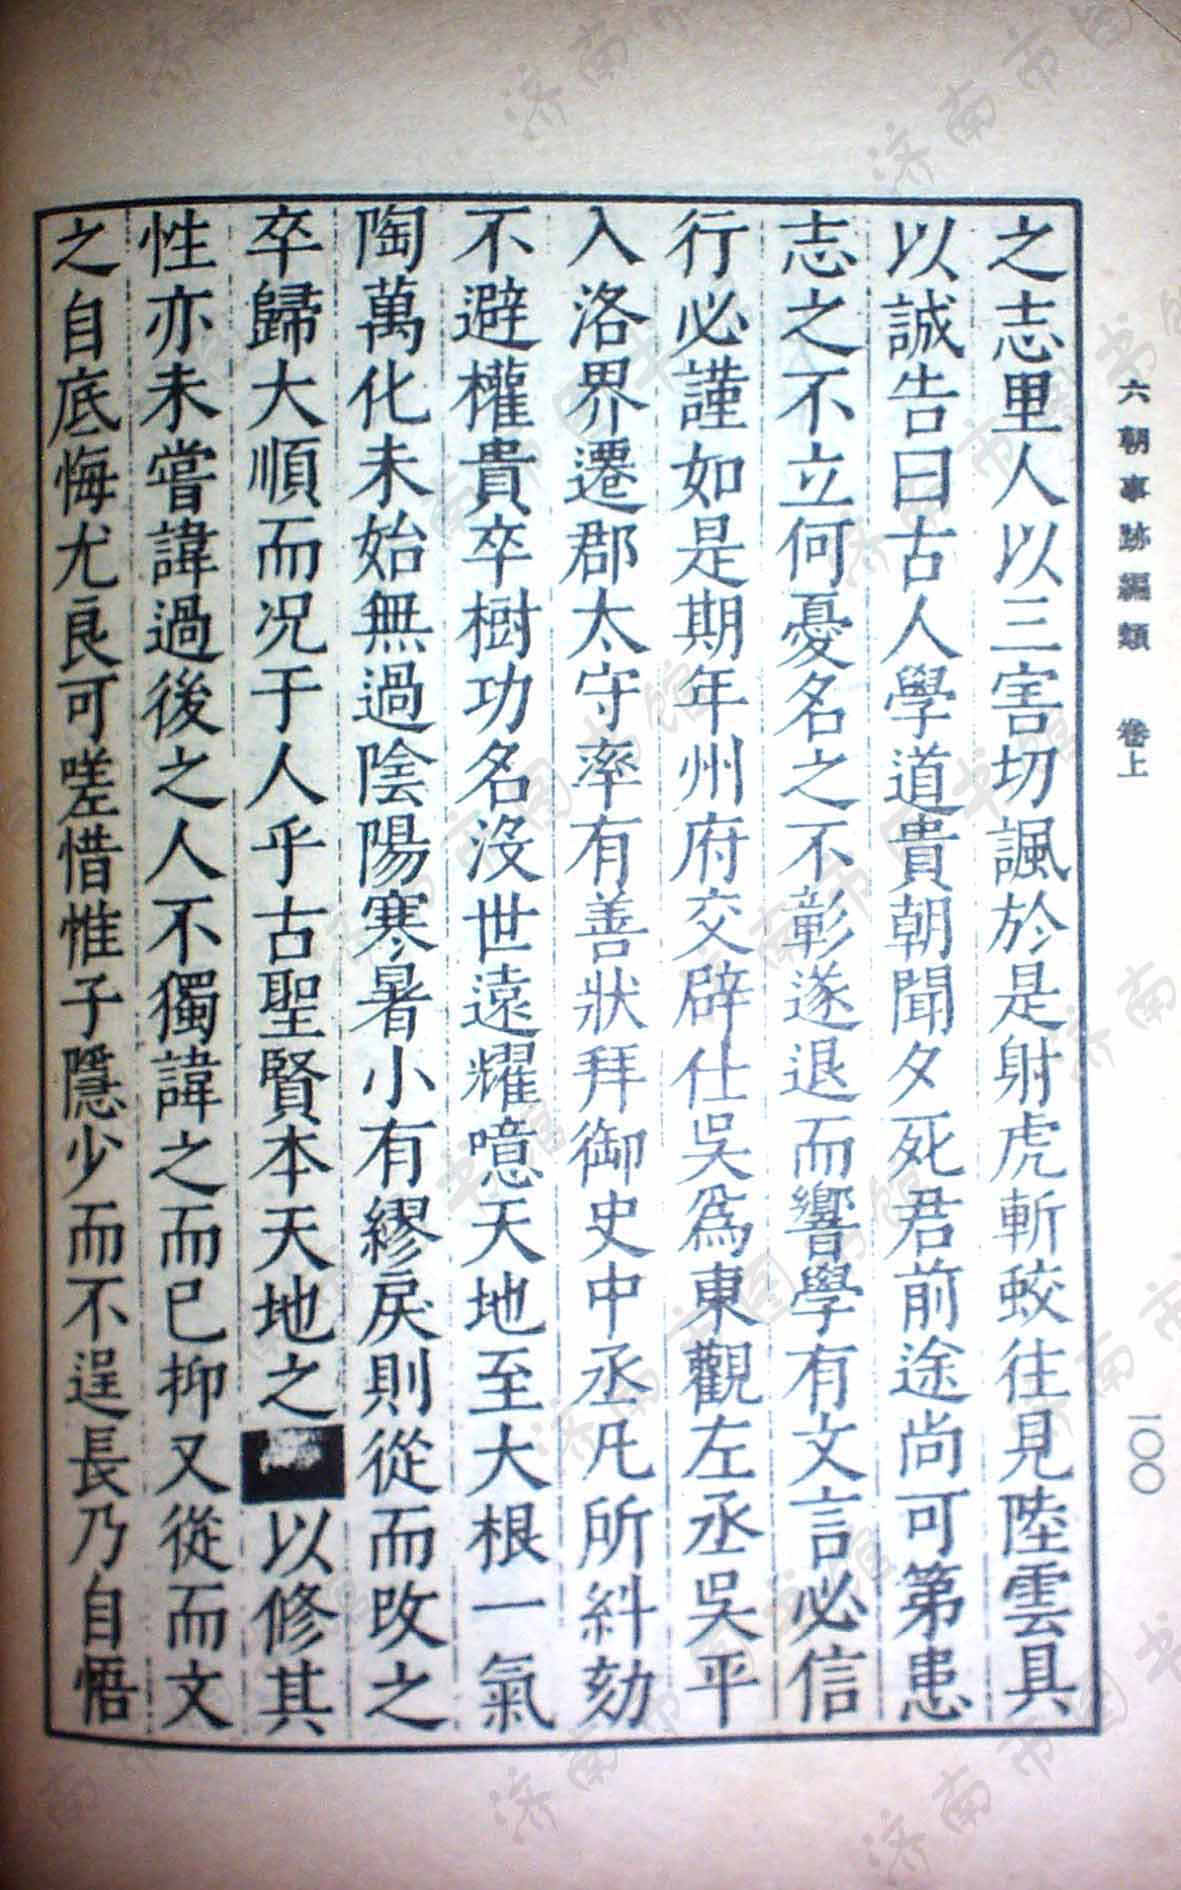 六朝事跡編類　卷上
一〇〇
之志里人以三害切諷於是射虎斬蛟往見陸雲具
以誠告曰古人學道貴朝聞夕死君前途尚可第患
志之不立何憂名之不彰遂退而響學有文言必信
行必謹如是期年州府交辟仕吳爲東觀左丞吳平
入洛界遷郡太守率有善狀拜御史中丞凡所糾劾
不避權貴卒樹功名沒世遠耀噫天地至大根一氣
陶萬化未始無過陰陽寒暑小有繆戾則從而改之
卒歸大順而况于人乎古聖賢本天地之以修其
性亦未嘗諱過後之人不獨諱之而已抑又從而文
之自底悔尤良可嗟惜惟子隱少而不逞長乃自悟
济南市图书馆